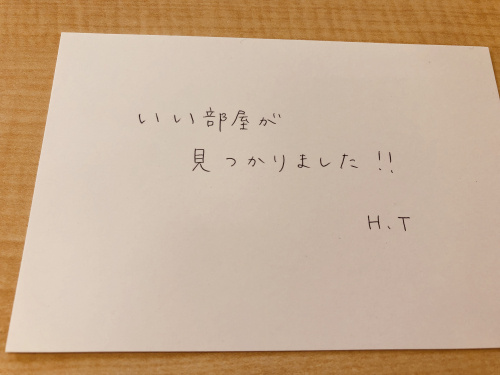 いい部屋が
見つかりました!!
H、T